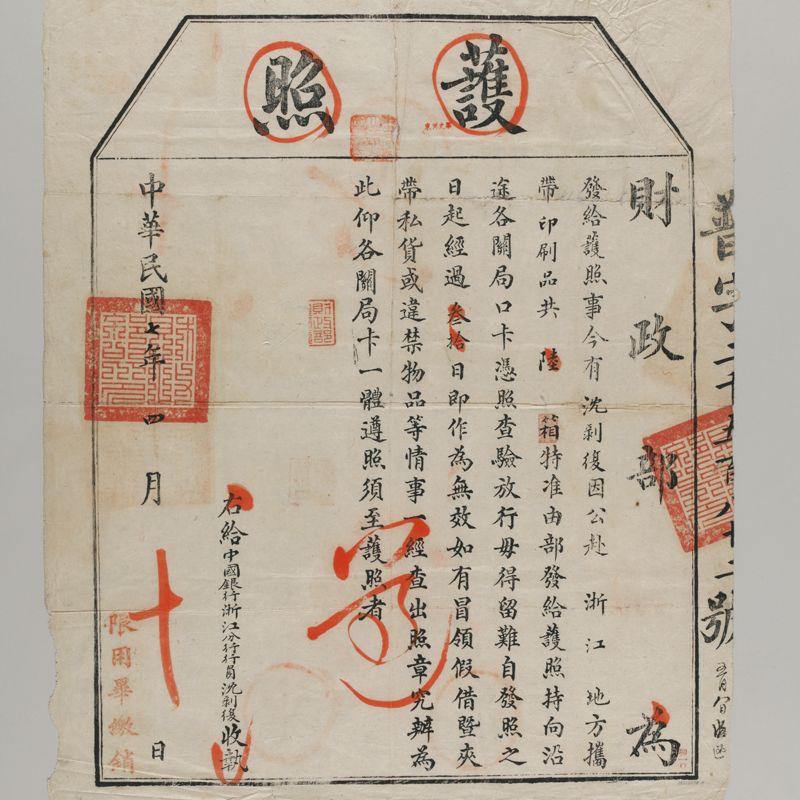 護照
財政部為
發給護照事今有沈剝復因公赴浙江地方攜
帶印刷品共陸箱特准由部發給護照持向沿
途各關局口卡憑照查驗放行毋得留難自發照之
日起經過叁拾日即作為無效如有冒領假借暨夾
帶私貨或違禁物品等情事一經查出照章究辦為
此仰各關局卡一體遵照須至護照者
右給中國銀行浙江分行行員沈剝復收執
中華民國七年四月十日
限用畢繳銷
財政部